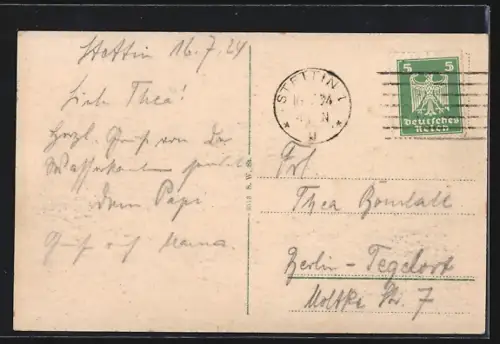 Stettin 16.7.24
Liebe Thea!
Herzl. Grüße von der
Wasserkante sendet
dein Papi
Gruß auch Mama
STETTIN 1
5 5
deutsches
Reich
Frl.
Thea
Berlin - Tegelort
Moltke Str. 7